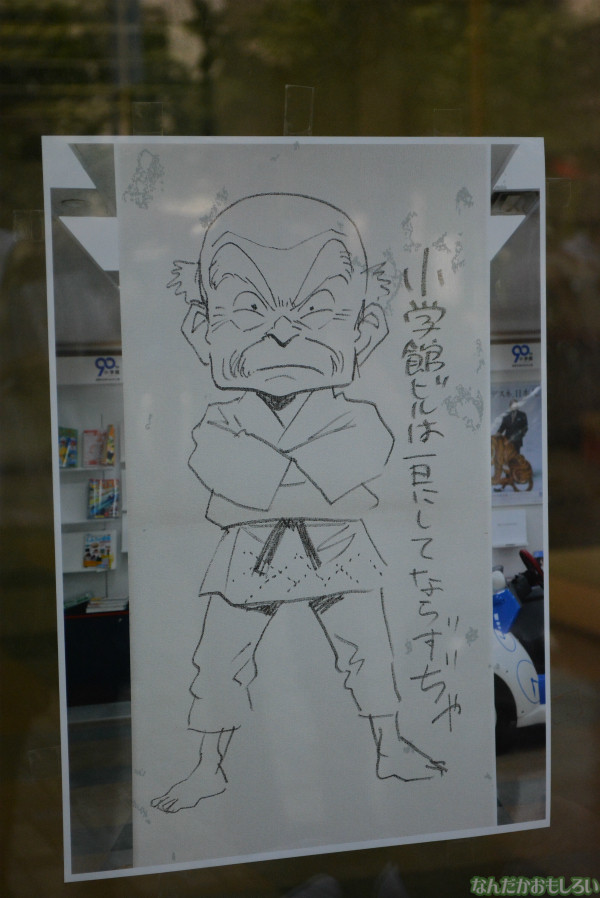 小学館ビルは一日にしてならずぢゃ
90
90
なんだかおもしろい